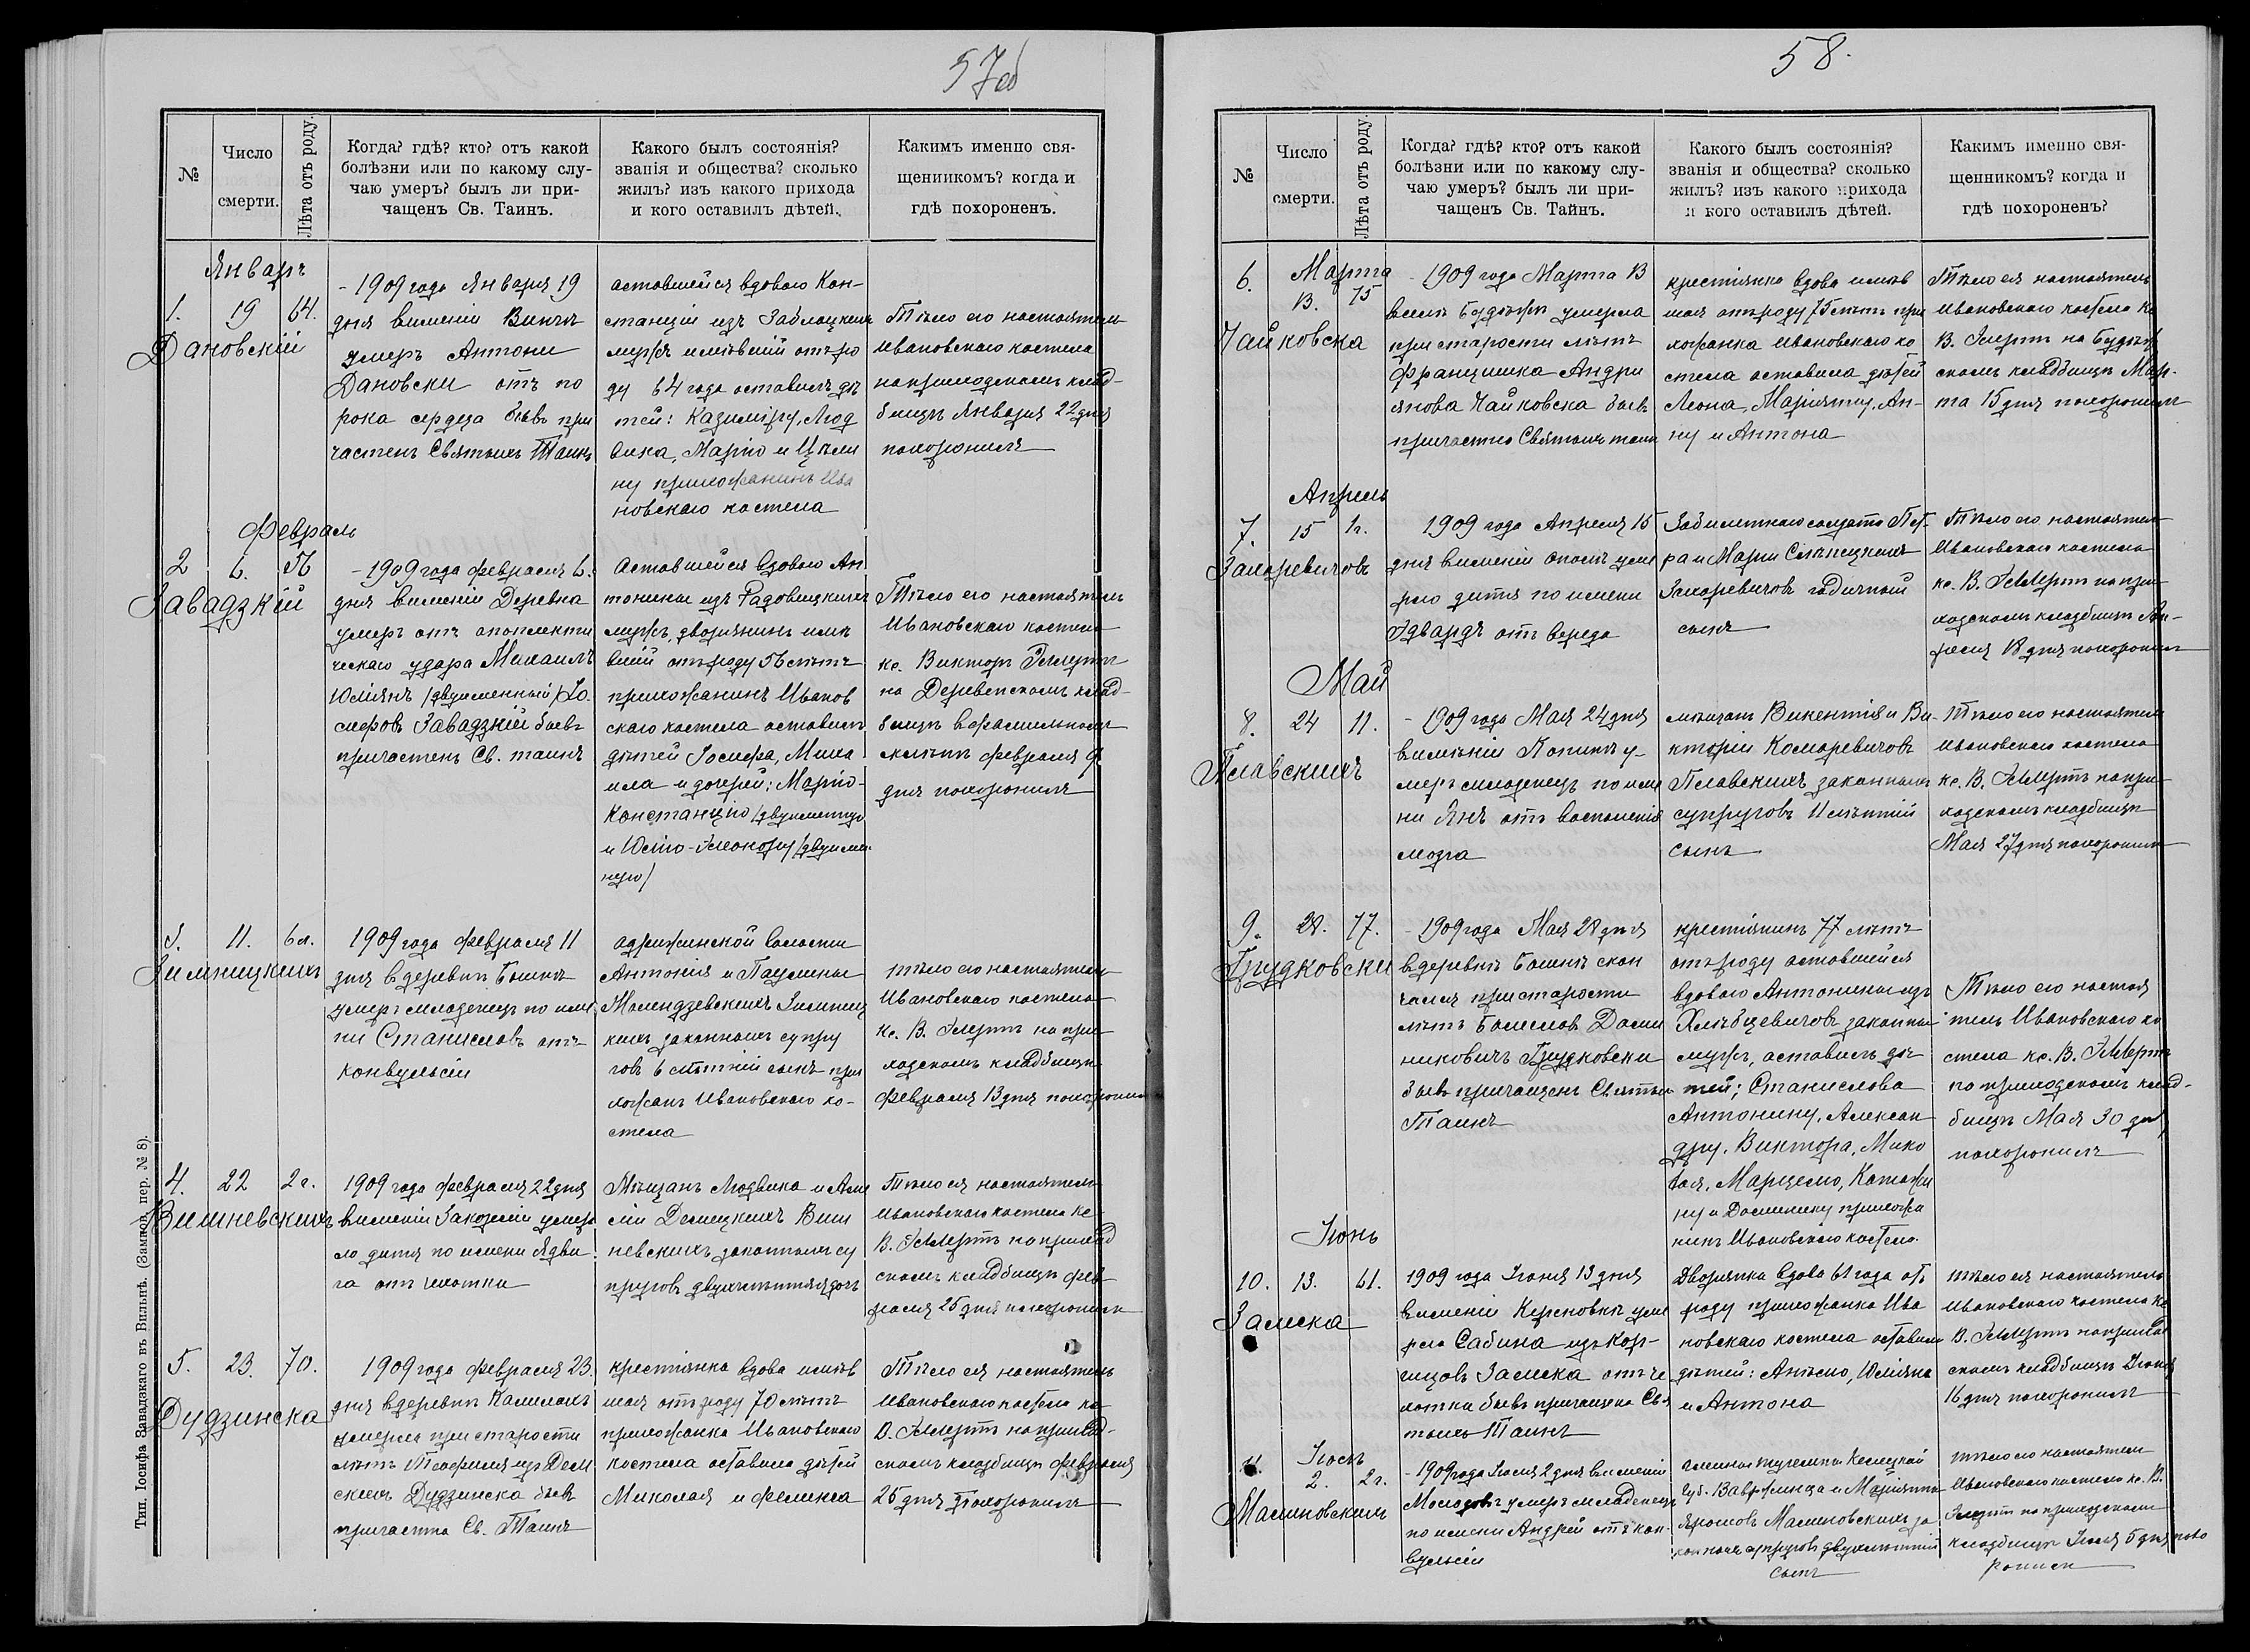 57об
№
Число
смерти.
Лѣта отъ роду.
Когда? гдѣ? кто? отъ какой
болѣзни или по какому слу-
чаю умеръ? былъ ли при-
чащенъ Св. Таинъ.
Какого былъ состоянія?
званія и общества? сколько
жилъ? изъ какого прихода
и кого оставилъ дѣтей.
Какимъ именно свя-
щенникомъ? когда и
гдѣ похороненъ.
Январь
1. 19 64.
Дановскій
- 1909 года Января 19
дня вимѣніи
умеръ Антони
Дановски отъ по
рока сердца бывъ при
частенъ Святыхъ Таинъ
аставшейся вдовою Кон-
станціи изъ Заблоцкихъ
мужъ имѣвшій отъ ро
ду 64 года оставилъ дѣ
тей: Казиміру, Люд
вика, Марію и Цѣли
ну прихожанинъ Ива
новскаго костела
Тѣло его настоятель
Ивановскаго костела
на приходскомъ клад-
бищѣ Января 22 дня
похоронилъ
Февраль
2 6. 56
Завадзкій
- 1909 года февраля 6.
дня вимѣніи Деревна
умеръ отъ апоплекти
ческаго удара Михаилъ
Юліянъ /двуименный/ Іо
сифовъ Завадзкій бывъ
причастенъ Св. таинъ
Аставшейся вдовою Ан
тонины изъ Радовицкихъ
мужъ, дворянинъ имѣ
вшій отъ роду 56 лѣтъ
прихожанинъ Иванов
скаго костела оставилъ
дѣтей Іосифа, Миха
ила и дочерей: Марію-
Констанцію /двуименную
и Юлію-Элеонору /двуимен
ную/
Тѣло его настоятель
Ивановскаго костела
кс. Викторъ
на Деревенскомъ клад-
бищѣ вфамильномъ
склѣпѣ февраля 9
дня похоронилъ
3. 11. 6 л.
Зимницкихъ
1909 года февраля 11
дня вдеревнѣ
умеръ младенецъ по име
ни Станиславъ отъ
конвульсіи
волости
Антонія и Паулины
Зимниц
кихъ законныхъ супру
говъ 6 лѣтній сынъ при
хожанъ Ивановскаго ко-
стела
тѣло его настоятель
Ивановскаго костела
кс. В. на при
ходскомъ кладбищѣ
февраля 13 дня похоронилъ
4. 22 2 г.
Вишневскихъ
1909 года февраля 22 дня
вимѣніи умер
ло дитя по имени Ядви
га отъ чахотки
Мѣщанъ Людвика и
Виш
невскихъ законныхъ су
пруговъ двухлѣтняя дочь
Тѣло ея настоятель
Ивановскаго костела кс.
В. на приход
скомъ кладбищѣ фев-
раля 25 дня похоронилъ
5. 23. 70.
Дудзинска
1909 года февраля 23.
дня вдеревнѣ
умерла при старости
лѣтъ Теофиля изъ
Дудзинска бывъ
причастна Св. Таинъ
крестіянка вдова имѣв
шая отъ роду 70 лѣтъ
прихожанка Ивановскаго
костела оставила дѣтей
Миколая и феликса
Тѣло ея настоятель
Ивановскаго костела кс.
В. на приход-
скомъ кладбищѣ февраля
25 дня похоронилъ
Тип. Іосифа Завадзкаго въ Вильнѣ. (Замков. пер. № 8).
58.
№
Число
смерти.
Лѣта отъ роду.
Когда? гдѣ? кто? отъ какой
болѣзни или по какому слу-
чаю умеръ? былъ ли при-
чащенъ Св. Тайнъ.
Какого былъ состоянія?
званія и общества? сколько
жилъ? изъ какого прихода
и кого оставилъ дѣтей.
Какимъ именно свя-
щенникомъ? когда и
гдѣ похороненъ?
Марта
6. 13. 75
Чайковска
- 1909 года Марта 13
умерла
при старости лѣтъ
Францишка Андри
янова Чайковска бывъ
причастна Святыхъ таинъ
крестіянка вдова имѣв
шая отъ роду 75 лѣтъ при
хожанка Ивановскаго ко
стела оставила дѣтей
Леона, Маріянну, Ан-
ну и Антона
Тѣло ея настоятель
Ивановскаго костела кс
В. на
скомъ кладбищѣ Мар-
та 15 дня похоронилъ
Апрель
7. 15 1 г.
Захоревичовъ
1909 года Апреля 15
дня вимѣніи уме
рло дитя по имени
Эдвардъ отъ вереда
Забилетнаго солдата Пет-
ра и Маріи
Захоревичовъ годичный
сынъ
Тѣло его настоятель
Ивановскаго костела
кс. В. на при
ходскомъ кладбищѣ Ап-
реля 18 дня похоронилъ
Май
8. 24 11.
Плавскихъ
- 1909 года Мая 24 дня
вимѣніи у
меръ младенецъ по име
ни Янъ отъ воспаленія
мозга
мѣщанъ Викентія и Ви-
кторіи Комаревичовъ
Плавскихъ законныхъ
супруговъ 11 лѣтній
сынъ
Тѣло его настоятель
Ивановскаго костела
кс. В. на при-
ходскомъ кладбищѣ
Мая 27 дня похоронилъ
9. 28. 77.
Грудковски
- 1909 года Мая 28 дня
вдеревнѣ скон
чался при старости
лѣтъ Болеслов Доми
никовичъ Грудковски
бывъ причащенъ Святыхъ
Таинъ
крестіянинъ 77 лѣтъ
отъ роду оставшейся
вдовою Антонины изъ
Хлѣбцевичовъ законный
мужъ, оставилъ дѣ
тей; Станислава
Антонину, Алексан
дру, Виктора, Мико
лая, Марцелю, Катажи
ну и Доминику прихожа
нинъ Ивановскаго костела.
Тѣло его настоя
тель Ивановскаго ко
стела кс. В.
на приходскомъ клад-
бищѣ Мая 30 дня
похоронилъ
Іюнь
10. 13. 61.
Замска
1909 года Іюня 13 дня
вимѣніи уме
рла Сабина изъ
Замска отъ че
хотки бывъ причащена Свя
тыхъ Таинъ
Дворянка вдова 61 года отъ
роду прихожанка Ива
новскаго костела оставила
дѣтей: Анѣлю, Юліяна
и Антона
тѣло ея настоятель
Ивановскаго костела кс
В. на приход
скомъ кладбищѣ Іюня
16 дня похоронилъ
Іюль
11. 2. 2 г.
Малиновскихъ
- 1909 года Іюля 2 дня вимѣніи
умеръ младенецъ
по имени Андрей отъ кон-
вульсіи
губ. Вавржинца и Маріянны
Малиновскихъ за
конныхъ супруговъ двухлѣтній
сынъ
тѣло его настоятель
Ивановскаго костела кс. В.
на приходскомъ
кладбищѣ Іюля 5 дня похо
ронилъ